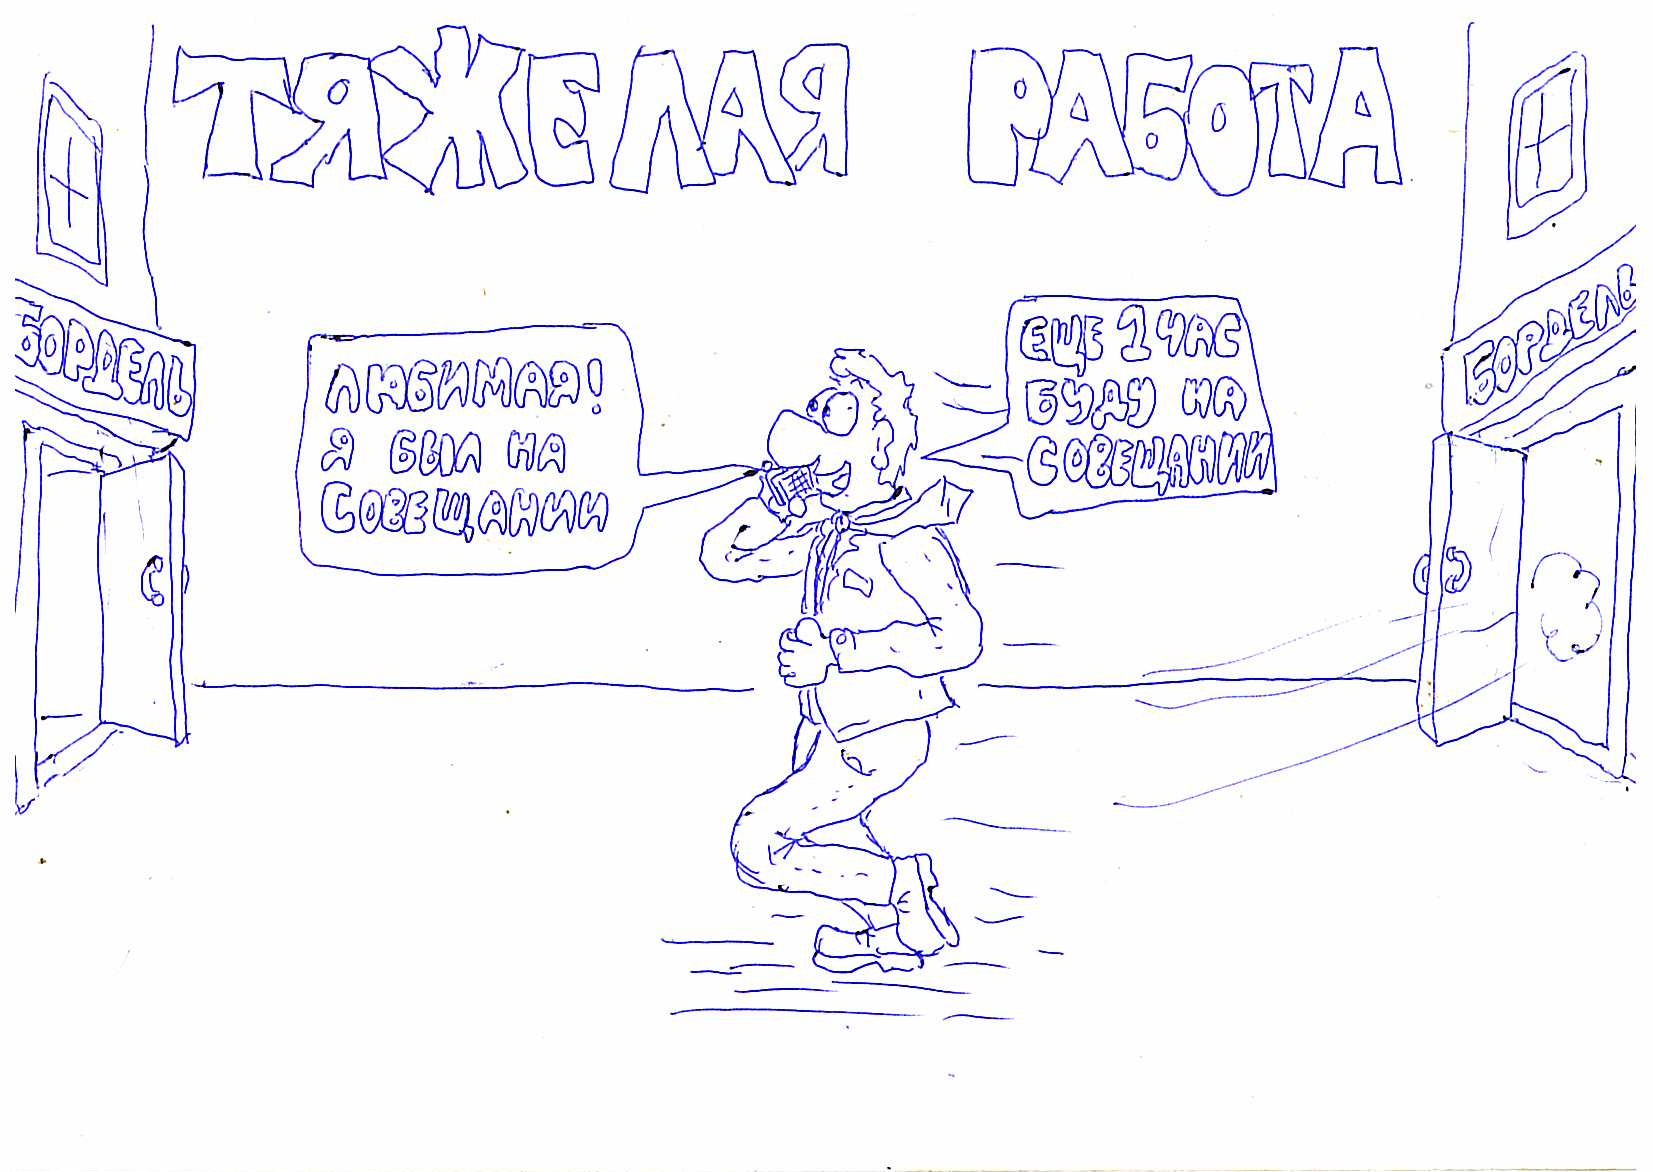 ТЯЖЕЛАЯ РАБОТА
БОРДЕЛЬ
ЛЮБИМАЯ!
Я БЫЛ НА
СОВЕЩАНИИ
ЕЩЕ 1 ЧАС
БУДУ НА
СОВЕЩАНИИ
БОРДЕЛЬ